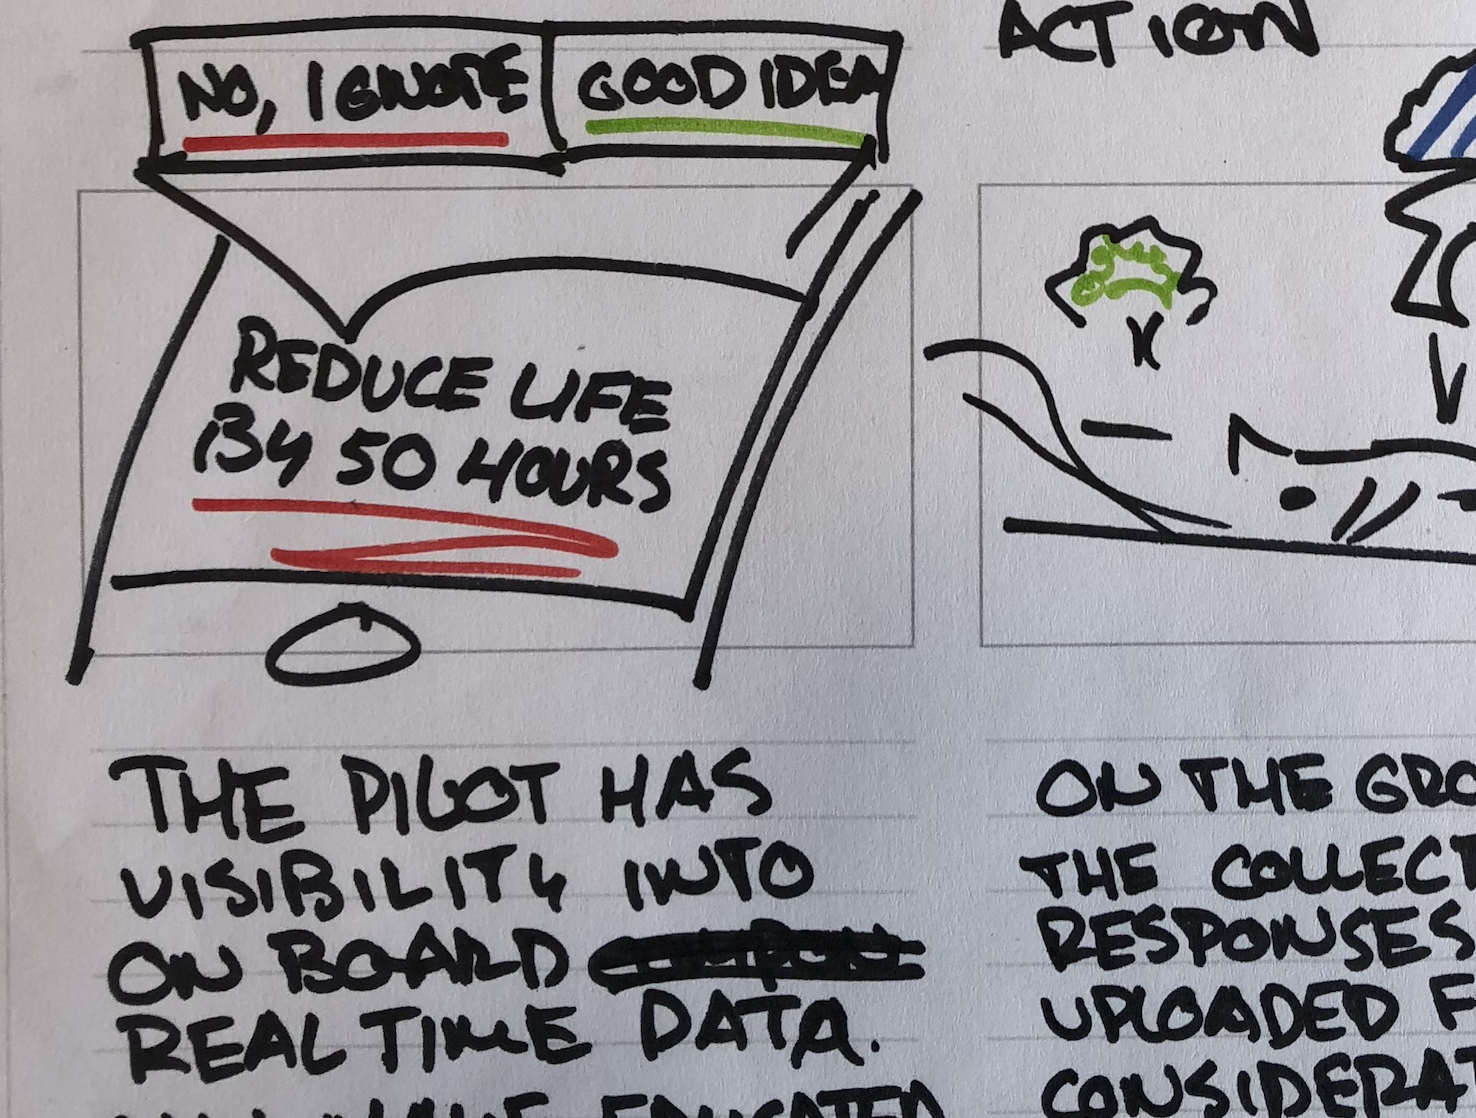 NO, IGNORE
GOOD IDEA
REDUCE LIFE
BY 50 HOURS
THE PILOT HAS
VISIBILITY INTO
ON BOARD
REAL TIME DATA.
EDUCATED
ACTION
ON THE GRO
THE COLLECT
RESPONSES
UPLOADED F
CONSIDERAT